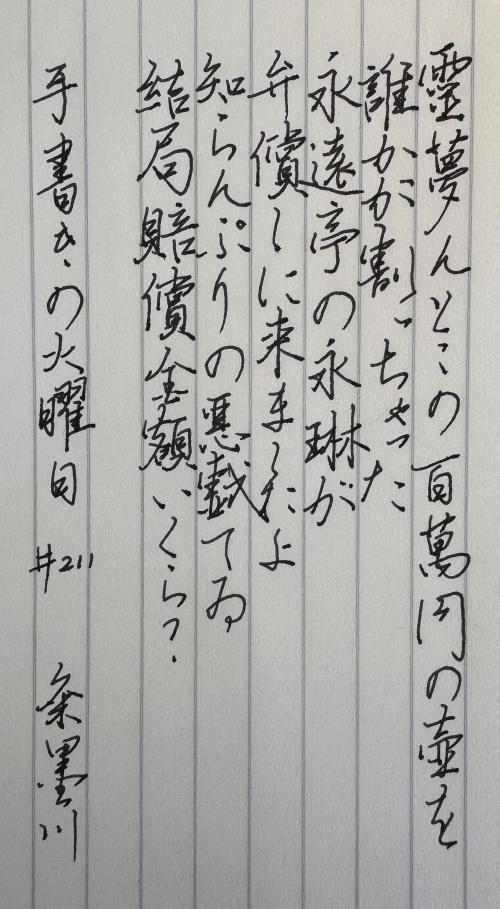 靈夢んとこの百萬円の壷を
誰かが割っちゃった
永遠亭の永琳が
弁償しに来ましたよ
知らんぷりの悪戯てゐ
結局賠償金額いくら?
手書きの火曜日 #211 墨川